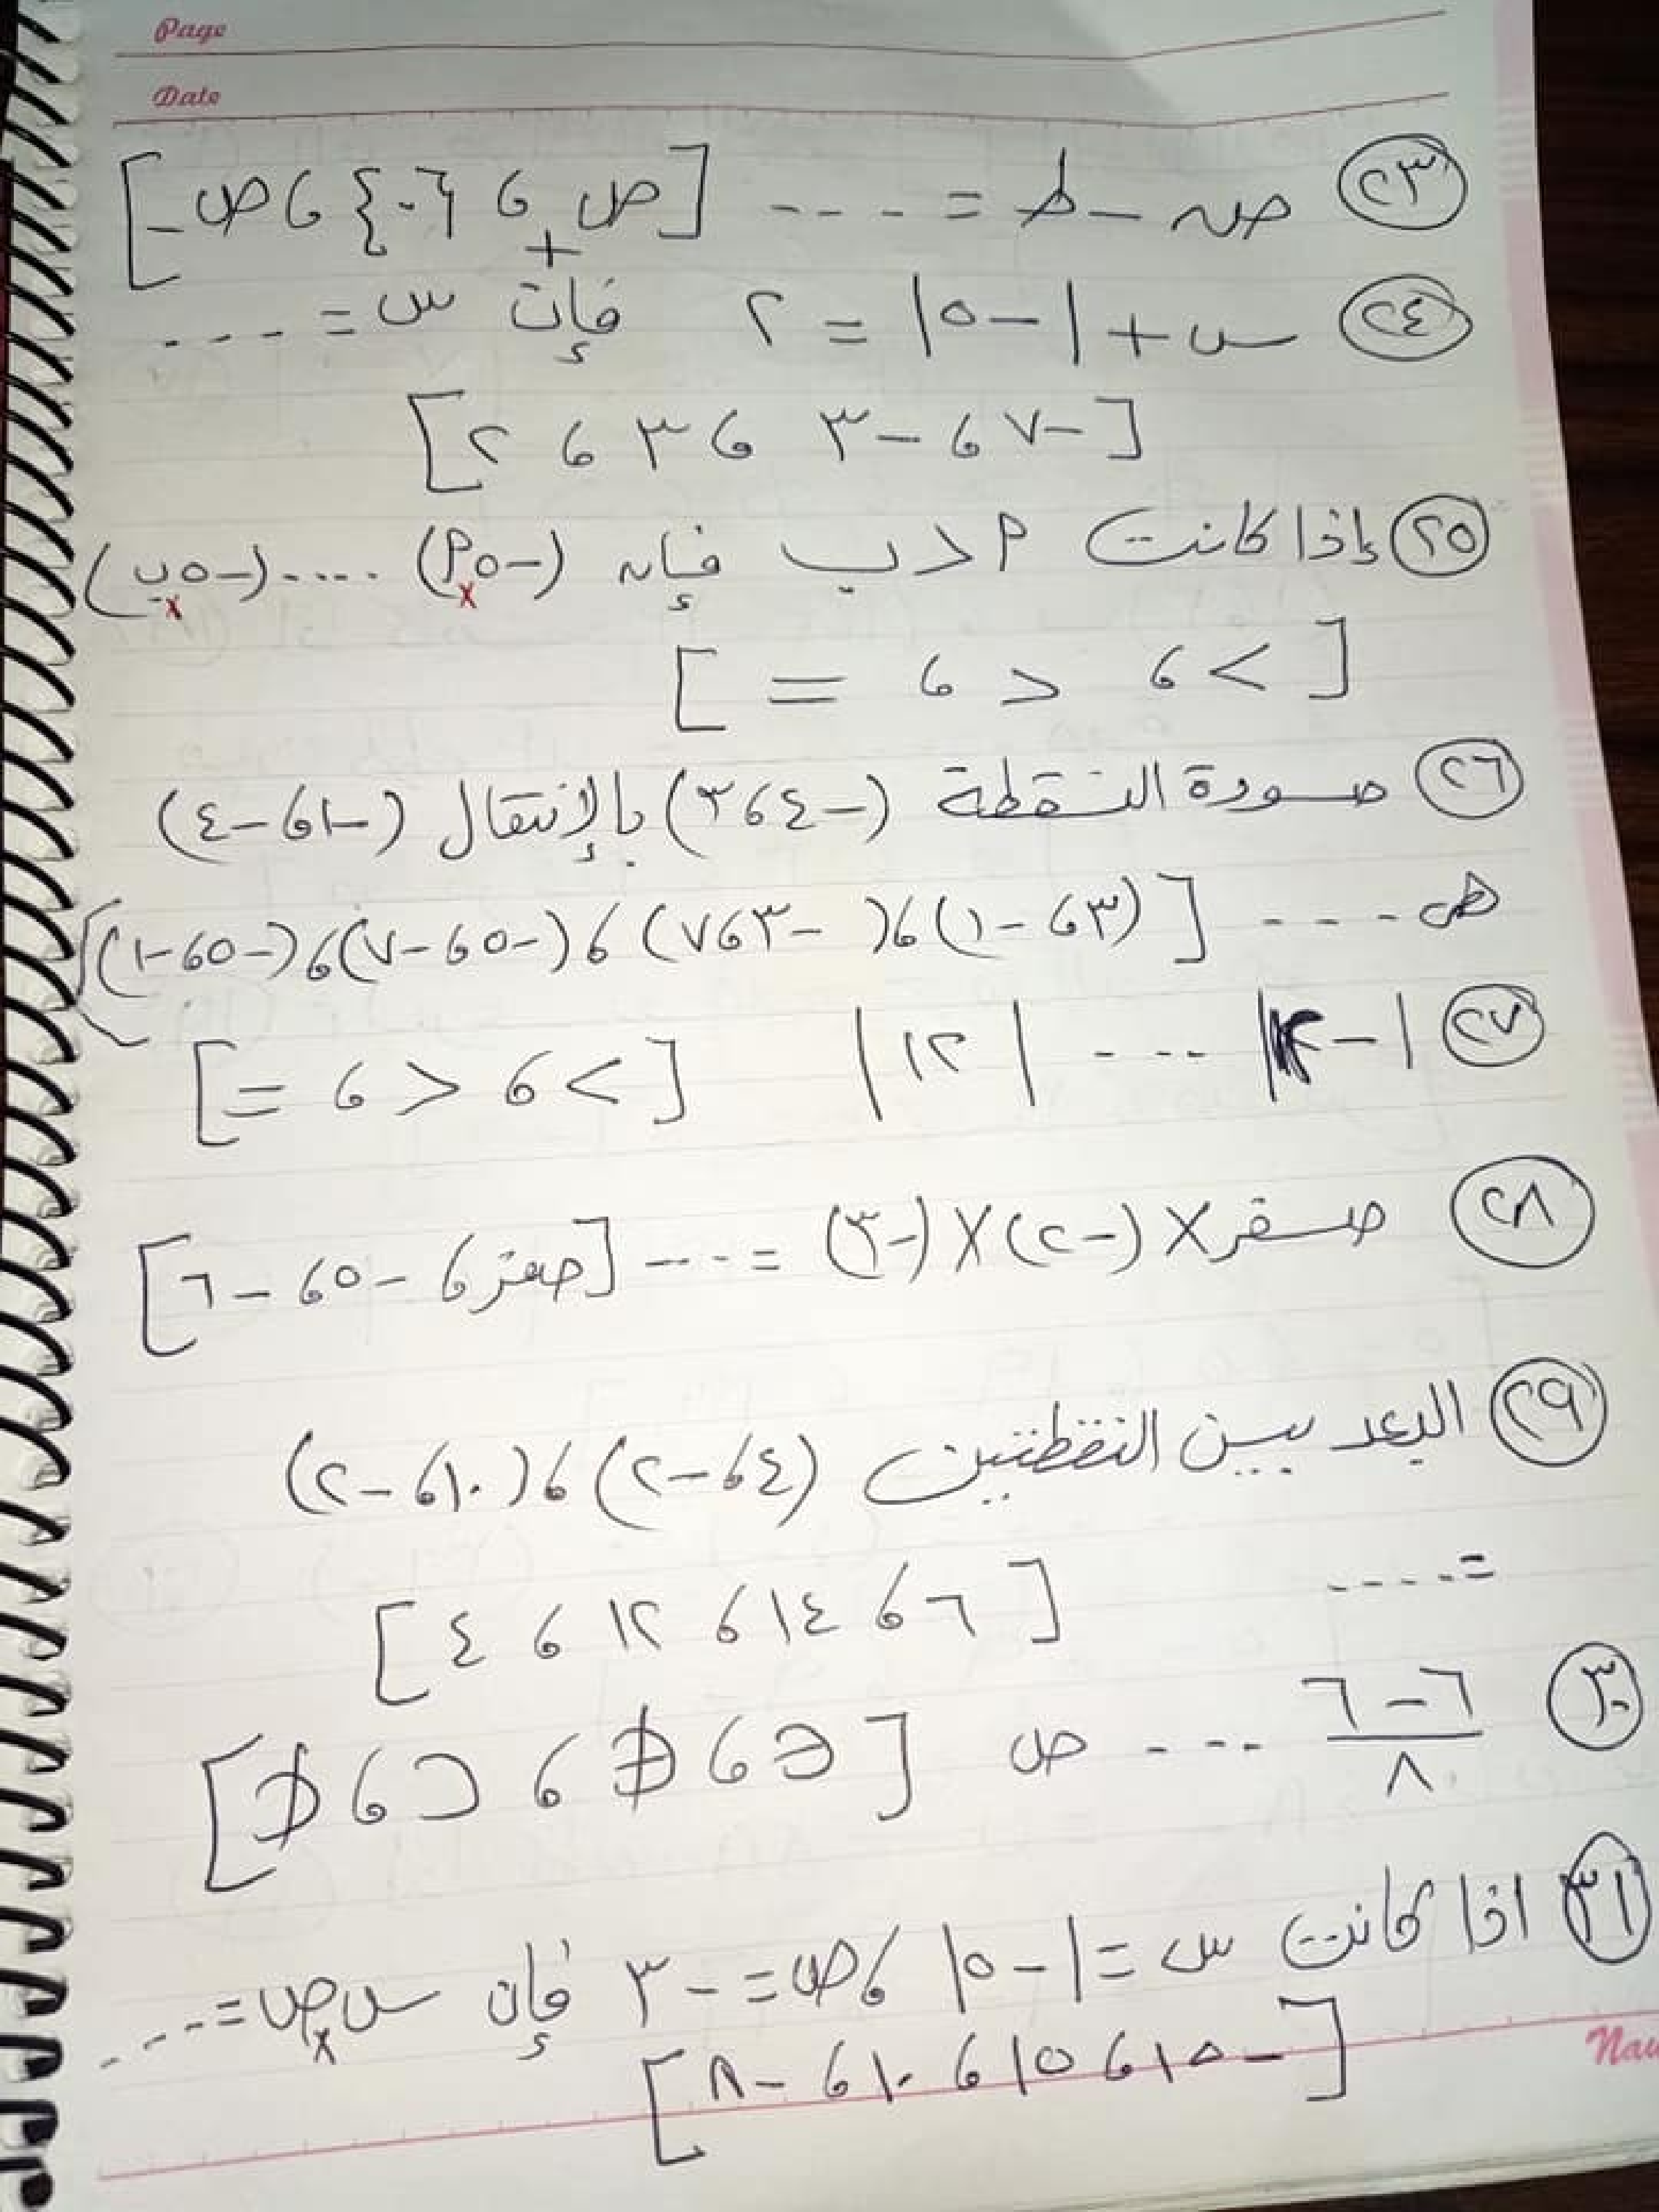 Page
Date
٢٣ ص - ط = .... [ص+ ، {٠} ، ص-]
٢٤ س + |-٥| = ٢ فإن س = ....
[-٧ ، -٣ ، ٣ ، ٢]
٢٥ إذا كانت م > ب فإن (-٥م) .... (-٥ب)
x x
[< ، > ، =]
٢٦ صورة النقطة (-٤ ، ٣) بالإنتقال (-١ ، -٤)
هى .... [(٣ ، -١) ، (-٣ ، ٧) ، (-٥ ، -٧) ، (-٥ ، -١)]
٢٧ .... |١٢| [< ، > ، =]
٢٨ صفر X (-٢) X (-٣) = .... [صفر ، -٥ ، -٦]
٢٩ البعد بين النقطتين (٤ ، -٢) ، (١٠ ، -٢)
= ....
[٦ ، ١٤ ، ١٢ ، ٤]
٣٠ ٦-٦/٨ .... ص [∈ ، ∉ ، ⊂ ، ⊄]
٣١ اذا كانت س = |-٥| ، ص = -٣ فإن س ص = ....
x
[-١٥ ، ١٥ ، ١٠ ، -٨]